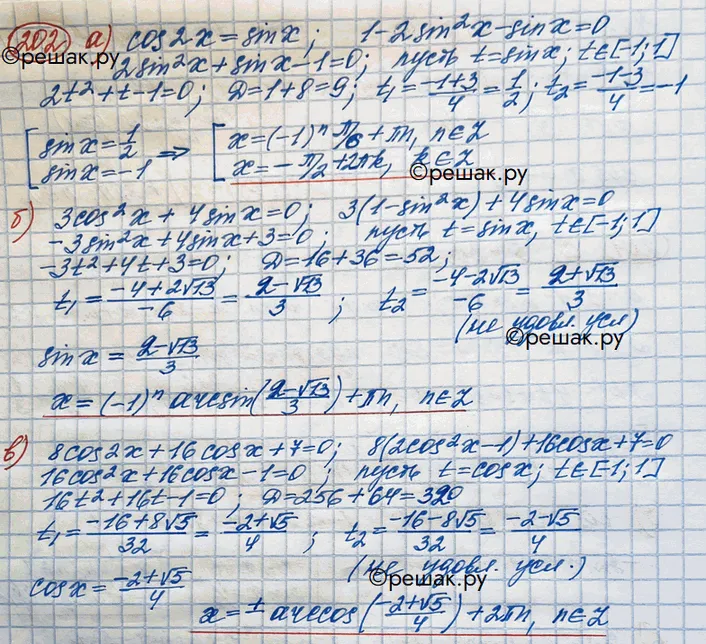 202 а) cos2x = sinx; 1-2sin²x-sinx=0
©решак.ру 2sin²x+sinx-1=0; пусть t=sinx; t∈[-1;1] ©решак.ру
2t²+t-1=0; Д=1+8=9; t₁=(-1+3)/4=1/2; t₂=(-1-3)/4=-1
[sinx=1/2 ⇒ [x=(-1)ⁿ π/6+πn, n∈Z
sinx=-1 x=-π/2+2πk, k∈Z
©решак.ру
б) 3cos²x+4sinx=0; 3(1-sin²x)+4sinx=0
-3sin²x+4sinx+3=0; пусть t=sinx, t∈[-1;1]
-3t²+4t+3=0; Д=16+36=52;
t₁=(-4+2√13)/-6=(2-√13)/3; t₂=(-4-2√13)/-6=(2+√13)/3
(не удовл. усл)
©решак.ру
sinx=(2-√13)/3
x=(-1)ⁿ arcsin((2-√13)/3)+πn, n∈Z
в) 8cos2x+16cosx+7=0; 8(2cos²x-1)+16cosx+7=0
16cos²x+16cosx-1=0; пусть t=cosx; t∈[-1;1]
16t²+16t-1=0; Д=256+64=320
t₁=(-16+8√5)/32=(-2+√5)/4; t₂=(-16-8√5)/32=(-2-√5)/4
(не удовл. усл.)
©решак.ру
cosx=(-2+√5)/4
x=± arccos((-2+√5)/4)+2πn, n∈Z